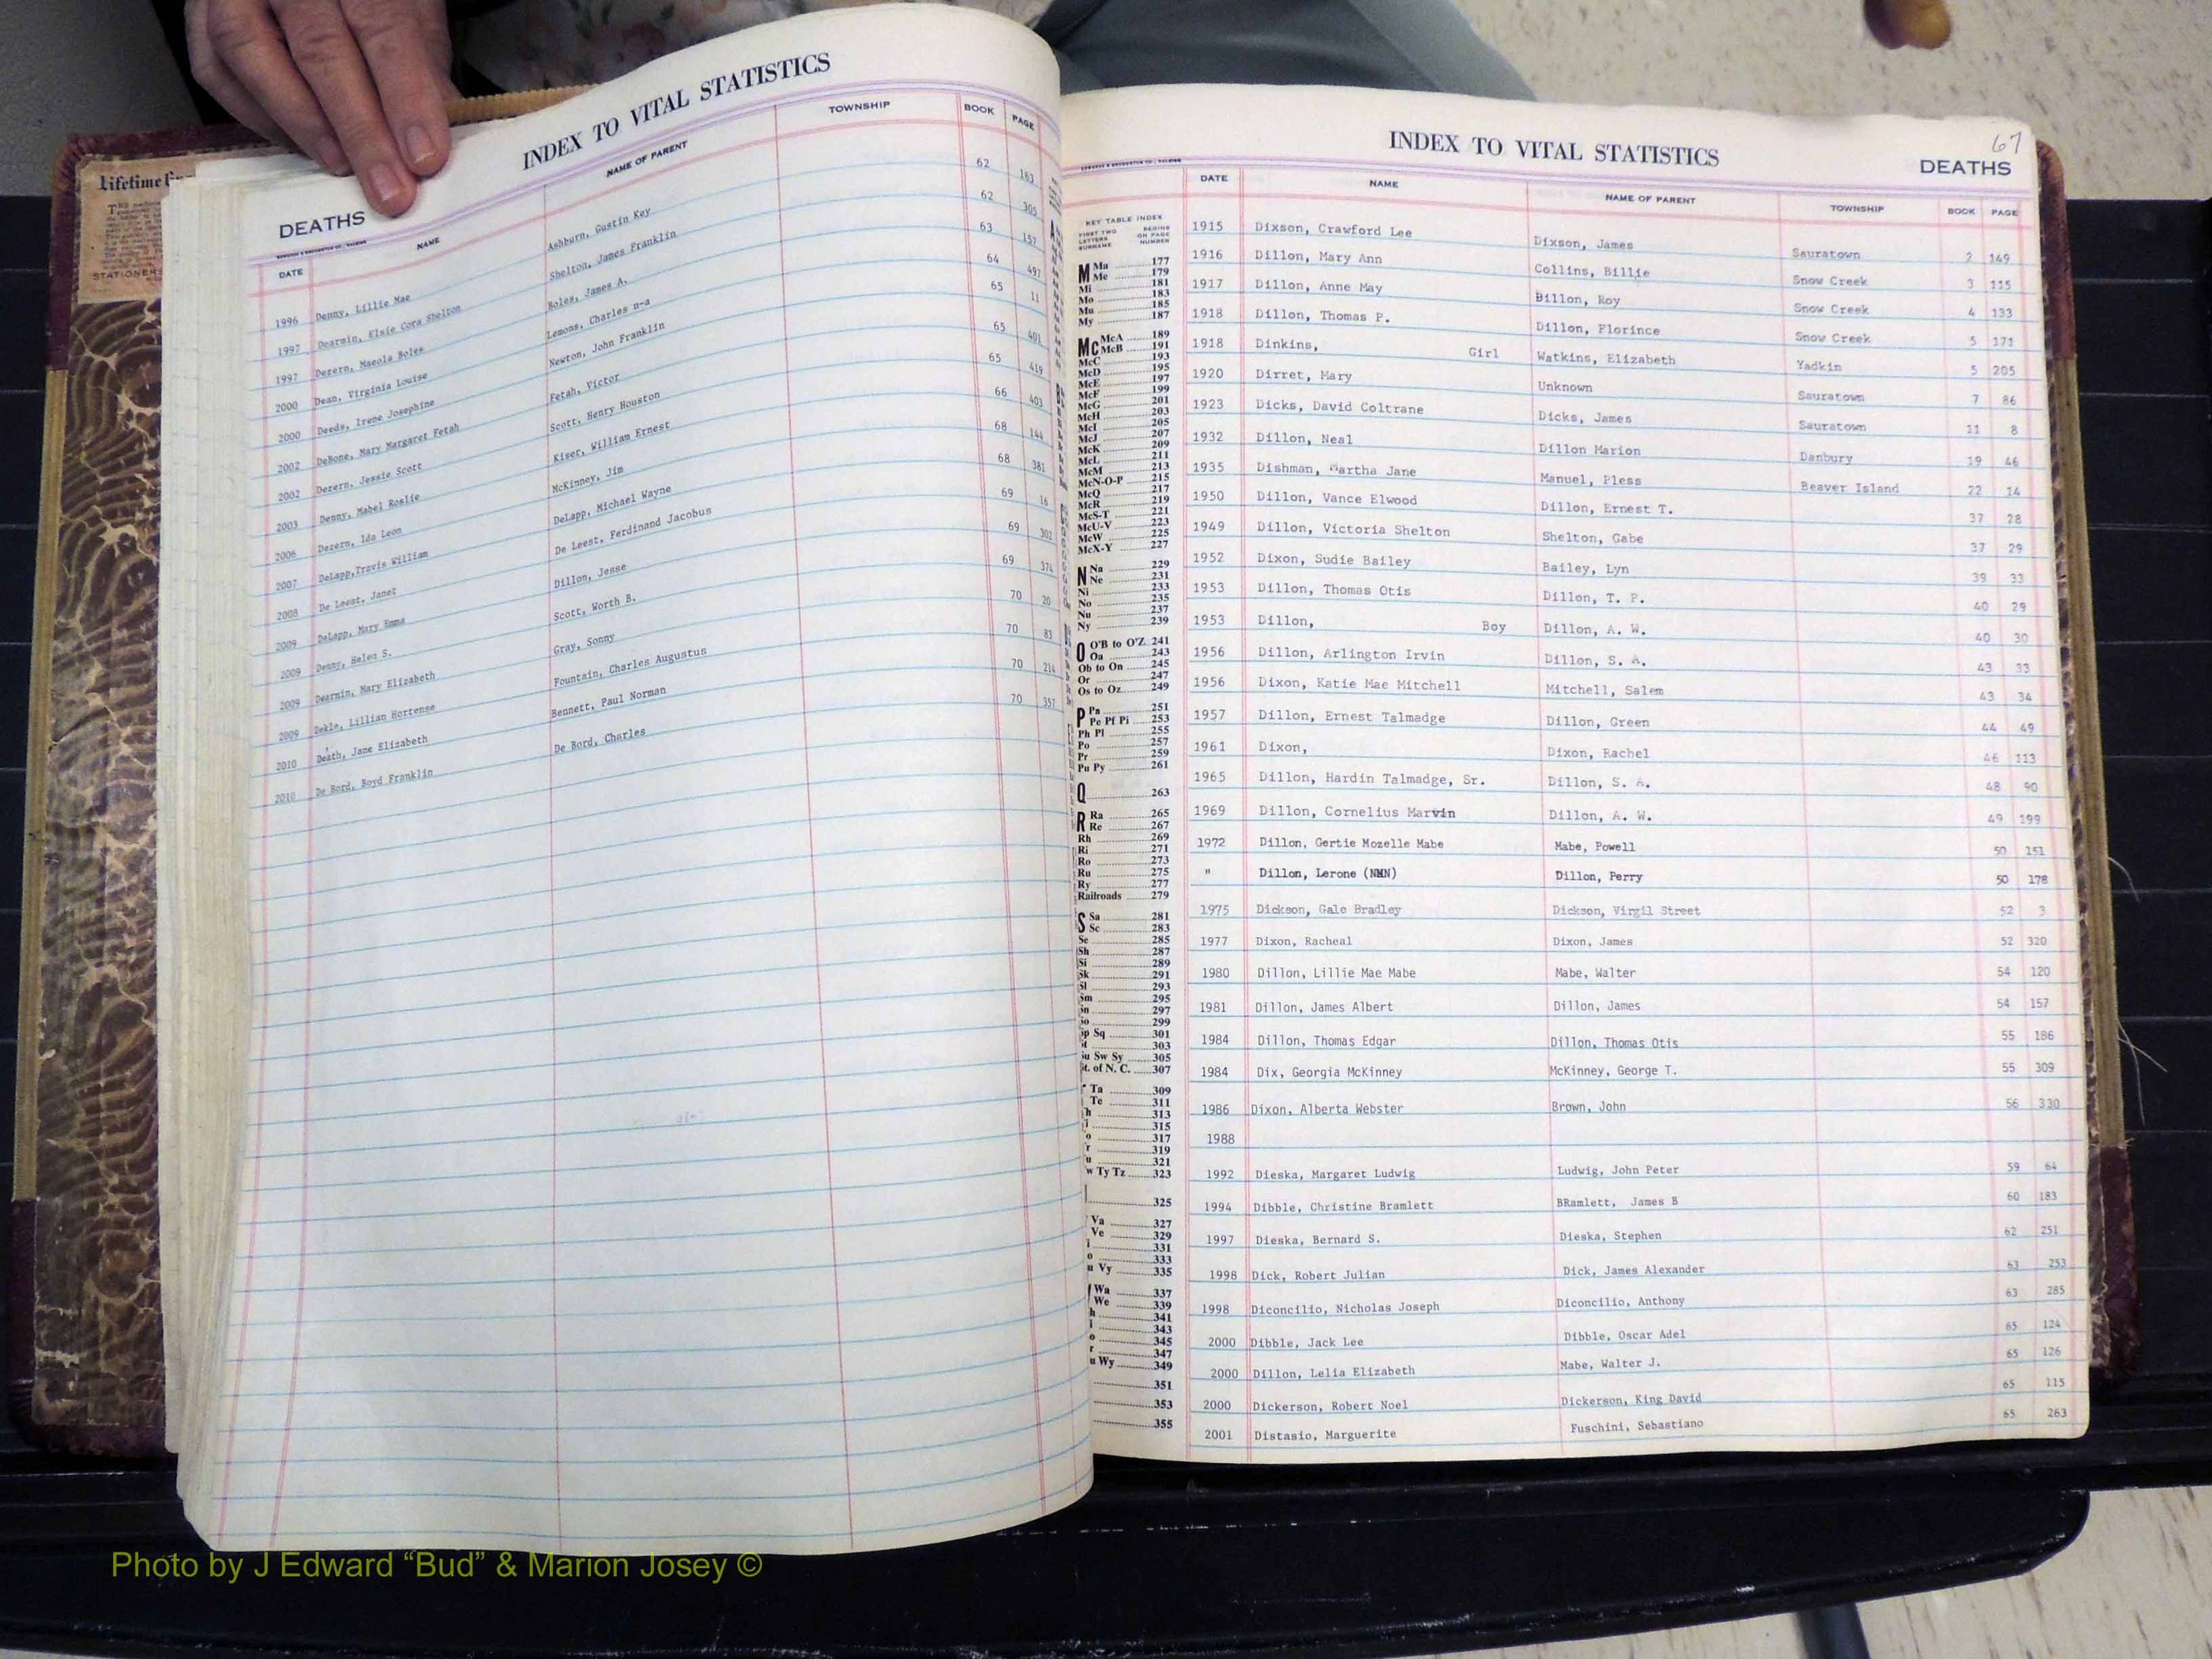 Lifetime
STATIONERS
INDEX TO VITAL STATISTICS
DEATHS
DATE NAME NAME OF PARENT TOWNSHIP BOOK PAGE
1996 Denny, Lillie Mae Ashburn, Gustin Key 62 163
1997 Dearmin, Elsie Cora Shelton Shelton, James Franklin 62 305
1997 Dezern, Maeola Boles Boles, James A. 63 157
2000 Dean, Virginia Louise Lemons, Charles n-a 64 497
2000 Deeds, Irene Josephine Newton, John Franklin 65 11
2002 DeBone, Mary Margaret Fetah Fetah, Victor 65 401
2002 Dezern, Jessie Scott Scott, Henry Houston 65 419
2003 Denny, Mabel Roslie Kiser, William Ernest 66 403
2006 Dezern, Ida Leon McKinney, Jim 68 144
2007 DeLapp,Travis William DeLapp, Michael Wayne 68 381
2008 De Leest, Janet De Leest, Ferdinand Jacobus 69 16
2009 DeLapp, Mary Emma Dillon, Jesse 69 302
2009 Denny, Helen S. Scott, Worth B. 69 374
2009 Dearmin, Mary Elizabeth Gray, Sonny 70 20
2009 Dekle, Lillian Hortense Fountain, Charles Augustus 70 83
2010 Death, Jane Elizabeth Bennett, Paul Norman 70 214
2010 De Bord, Boyd Franklin De Bord, Charles 70 357
67
INDEX TO VITAL STATISTICS
DEATHS
DATE NAME NAME OF PARENT TOWNSHIP BOOK PAGE
1915 Dixson, Crawford Lee Dixson, James Sauratown 2 149
1916 Dillon, Mary Ann Collins, Billie Snow Creek 3 115
1917 Dillon, Anne May Billon, Roy Snow Creek 4 133
1918 Dillon, Thomas P. Dillon, Florince Snow Creek 5 171
1918 Dinkins, Girl Watkins, Elizabeth Yadkin 5 205
1920 Dirret, Mary Unknown Sauratown 7 86
1923 Dicks, David Coltrane Dicks, James Sauratown 11 8
1932 Dillon, Neal Dillon Marion Danbury 19 46
1935 Dishman, Martha Jane Manuel, Pless Beaver Island 22 14
1950 Dillon, Vance Elwood Dillon, Ernest T. 37 28
1949 Dillon, Victoria Shelton Shelton, Gabe 37 29
1952 Dixon, Sudie Bailey Bailey, Lyn 39 33
1953 Dillon, Thomas Otis Dillon, T. P. 40 29
1953 Dillon, Boy Dillon, A. W. 40 30
1956 Dillon, Arlington Irvin Dillon, S. A. 43 33
1956 Dixon, Katie Mae Mitchell Mitchell, Salem 43 34
1957 Dillon, Ernest Talmadge Dillon, Green 44 49
1961 Dixon, Dixon, Rachel 46 113
1965 Dillon, Hardin Talmadge, Sr. Dillon, S. A. 48 90
1969 Dillon, Cornelius Marvin Dillon, A. W. 49 199
1972 Dillon, Gertie Mozelle Mabe Mabe, Powell 50 151
" Dillon, Lerone (NMN) Dillon, Perry 50 178
1975 Dickson, Gale Bradley Dickson, Virgil Street 52 3
1977 Dixon, Racheal Dixon, James 52 320
1980 Dillon, Lillie Mae Mabe Mabe, Walter 54 120
1981 Dillon, James Albert Dillon, James 54 157
1984 Dillon, Thomas Edgar Dillon, Thomas Otis 55 186
1984 Dix, Georgia McKinney McKinney, George T. 55 309
1986 Dixon, Alberta Webster Brown, John 56 330
1988
1992 Dieska, Margaret Ludwig Ludwig, John Peter 59 64
1994 Dibble, Christine Bramlett BRamlett, James B 60 183
1997 Dieska, Bernard S. Dieska, Stephen 62 251
1998 Dick, Robert Julian Dick, James Alexander 63 253
1998 Diconcilio, Nicholas Joseph Diconcilio, Anthony 63 285
2000 Dibble, Jack Lee Dibble, Oscar Adel 65 124
2000 Dillon, Lelia Elizabeth Mabe, Walter J. 65 126
2000 Dickerson, Robert Noel Dickerson, King David 65 115
2001 Distasio, Marguerite Fuschini, Sebastiano 65 263
KEY TABLE INDEX
FIRST TWO LETTERS SURNAME BEGINS ON PAGE NUMBER
M Ma 177
Me 179
Mi 181
Mo 183
Mu 185
My 187
Mc McA 189
McB 191
McC 193
McD 195
McE 197
McF 199
McG 201
McH 203
McI 205
McJ 207
McK 209
McL 211
McM 213
McN-O-P 215
McQ 217
McR 219
McS-T 221
McU-V 223
McW 225
McX-Y 227
N Na 229
Ne 231
Ni 233
No 235
Nu 237
Ny 239
O O'B to O'Z 241
Oa 243
Ob to On 245
Or 247
Os to Oz 249
P Pa 251
Pe Pf Pi 253
Ph Pl 255
Po 257
Pr 259
Pu Py 261
Q 263
R Ra 265
Re 267
Rh 269
Ri 271
Ro 273
Ru 275
Ry 277
Railroads 279
S Sa 281
Sc 283
Se 285
Sh 287
Si 289
Sk 291
Sl 293
Sm 295
Sn 297
So 299
Sp Sq 301
St 303
Su Sw Sy 305
St. of N. C. 307
Ta 309
Te 311
313
315
317
319
321
Ty Tz 323
325
Va 327
Ve 329
331
333
Vy 335
Wa 337
We 339
341
343
345
347
Wy 349
351
353
355
Photo by J Edward “Bud” & Marion Josey ©